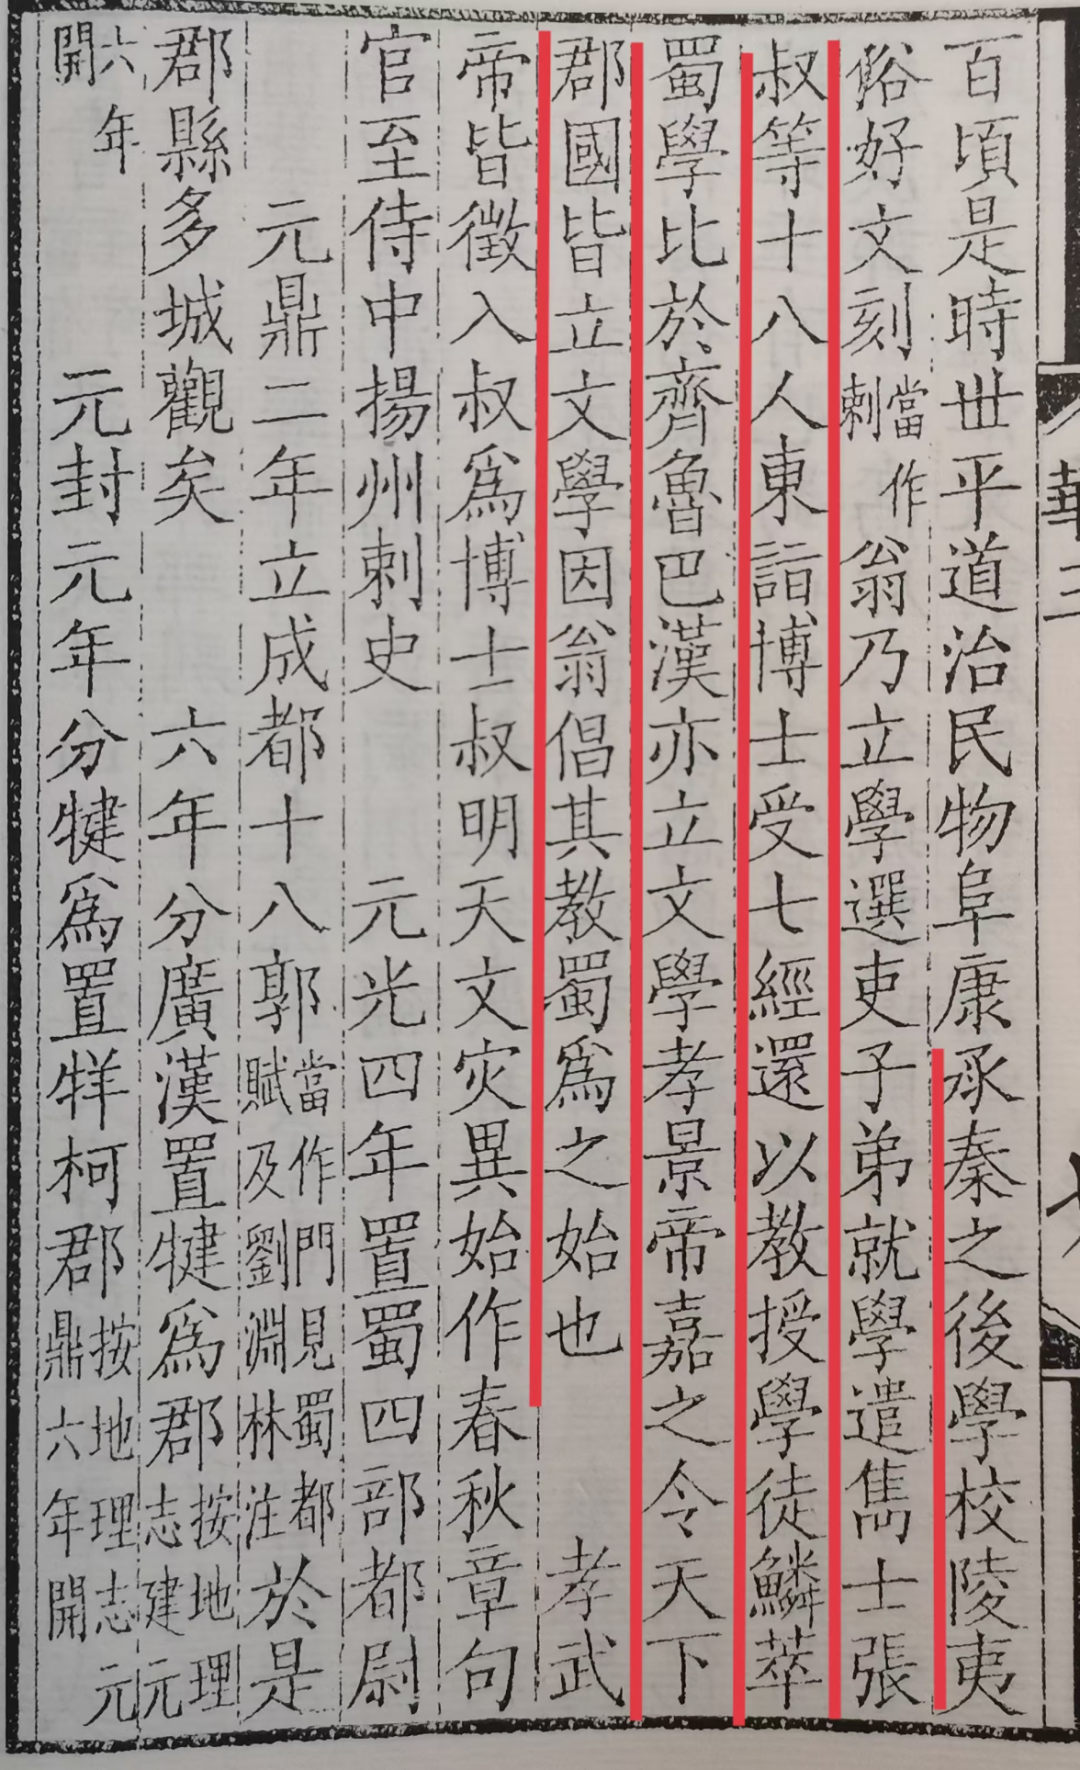 百頃是時世平道治民物阜康承秦之後學校陵夷
俗好文刻當作剌翁乃立學選吏子弟就學遣雋士張
叔等十八人東詣博士受七經還以教授學徒鱗萃
蜀學比於齊魯巴漢亦立文學孝景帝嘉之令天下
郡國皆立文學因翁倡其教蜀爲之始也 孝武
帝皆徵入叔爲博士叔明天文灾異始作春秋章句
官至侍中揚州刺史 元光四年置蜀四部都尉
元鼎二年立成都十八郭當作門見蜀都賦及劉淵林注於是
郡縣多城觀矣 六年分廣漢置犍爲郡按地理志建元
六年開 元封元年分犍爲置牂柯郡按地理志元鼎六年開
華三